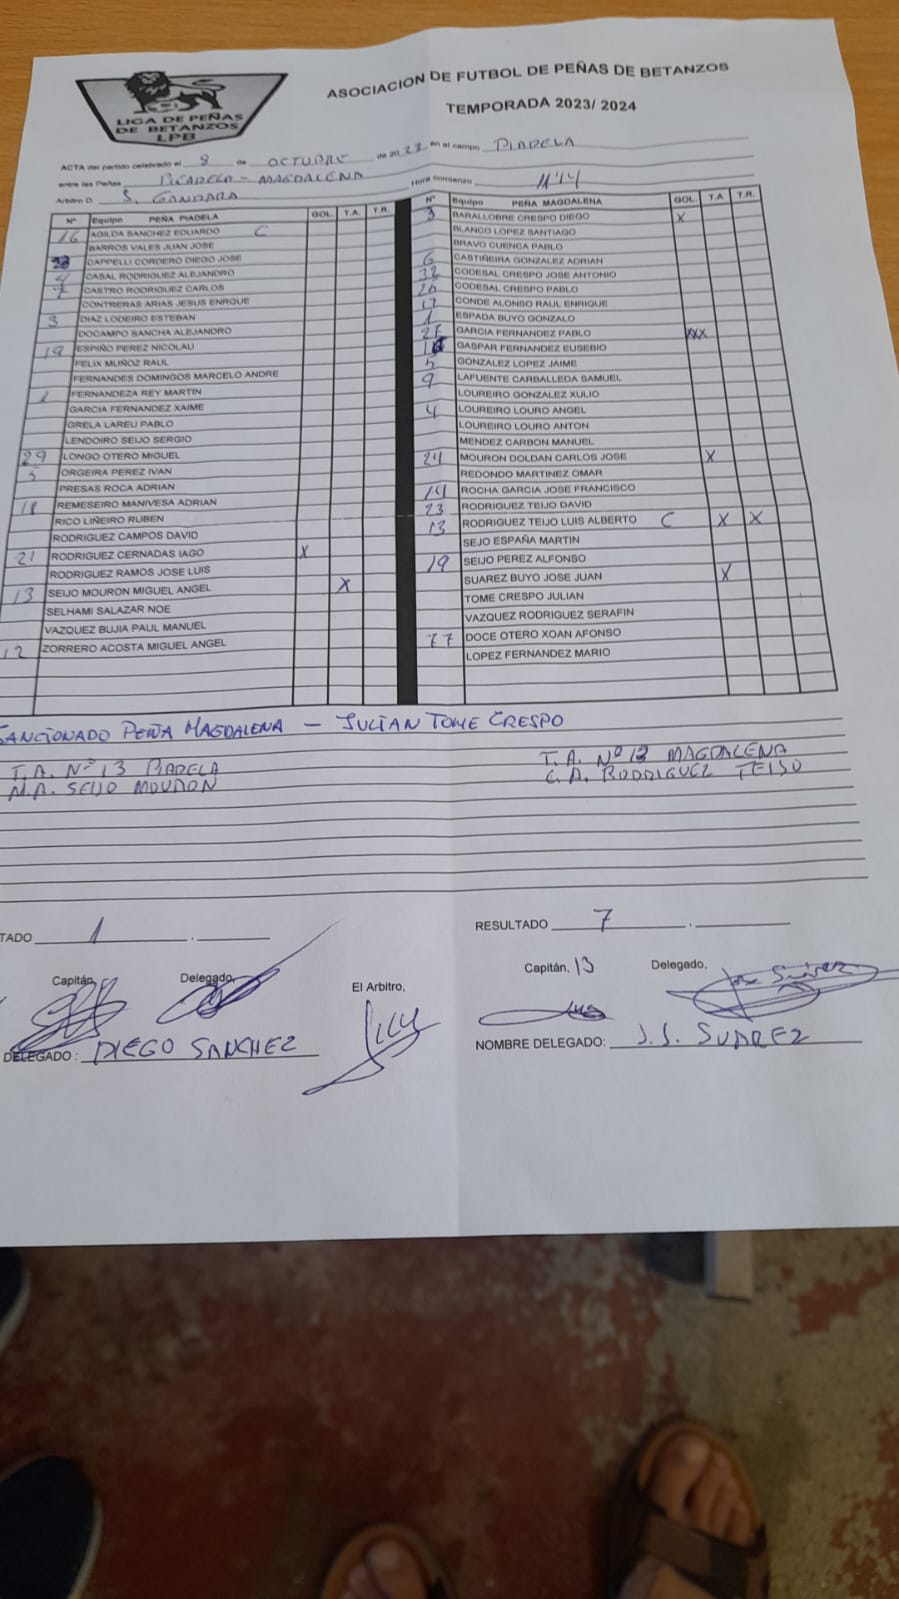 LIGA DE PEÑAS
DE BETANZOS
LPB
ASOCIACION DE FUTBOL DE PEÑAS DE BETANZOS
TEMPORADA 2023/ 2024
ACTA del partido celebrado el 8 de OCTUBRE de 2023 en el campo PIADELA
entre las Peñas PIADELA - MAGDALENA Hora comienzo 11'14
Arbitro D. S. GANDARA
Nº Equipo PEÑA PIADELA GOL. T.A. T.R.
16 AGILDA SANCHEZ EDUARDO C
BARROS VALES JUAN JOSE
CAPPELLI CORDERO DIEGO JOSE
4 CABAL RODRIGUEZ ALEJANDRO
7 CASTRO RODRIGUEZ CARLOS
CONTRERAS ARIAS JESUS ENRQUE
3 DIAZ LODEIRO ESTEBAN
DOCAMPO SANCHA ALEJANDRO
19 ESPIÑO PEREZ NICOLAU
FELIX MUÑOZ RAUL
FERNANDES DOMINGOS MARCELO ANDRE
1 FERNANDEZA REY MARTIN
GARCIA FERNANDEZ XAIME
GRELA LAREU PABLO
LENDOIRO SEIJO SERGIO
29 LONGO OTERO MIGUEL
5 ORGEIRA PEREZ IVAN
PRESAS ROCA ADRIAN
18 REMESEIRO MANIVESA ADRIAN
RICO LIÑEIRO RUBEN
RODRIGUEZ CAMPOS DAVID
21 RODRIGUEZ CERNADAS IAGO X
RODRIGUEZ RAMOS JOSE LUIS
13 SEIJO MOURON MIGUEL ANGEL X
SELHAMI SALAZAR NOE
VAZQUEZ BUJIA PAUL MANUEL
12 ZORRERO ACOSTA MIGUEL ANGEL
Nº Equipo PEÑA MAGDALENA GOL. T.A T.R.
3 BARALLOBRE CRESPO DIEGO X
BLANCO LOPEZ SANTIAGO
BRAVO CUENCA PABLO
6 CASTIÑEIRA GONZALEZ ADRIAN
32 CODESAL CRESPO JOSE ANTONIO
20 CODESAL CRESPO PABLO
17 CONDE ALONSO RAUL ENRIQUE
1 ESPADA BUYO GONZALO
27 GARCIA FERNANDEZ PABLO XXX
GASPAR FERNANDEZ EUSEBIO
5 GONZALEZ LOPEZ JAIME
9 LAFUENTE CARBALLEDA SAMUEL
LOUREIRO GONZALEZ XULIO
4 LOUREIRO LOURO ANGEL
LOUREIRO LOURO ANTON
MENDEZ CARBON MANUEL
24 MOURON DOLDAN CARLOS JOSE X
REDONDO MARTINEZ OMAR
14 ROCHA GARCIA JOSE FRANCISCO
23 RODRIGUEZ TEIJO DAVID
13 RODRIGUEZ TEIJO LUIS ALBERTO C X X
SEJO ESPAÑA MARTIN
19 SEIJO PEREZ ALFONSO
SUAREZ BUYO JOSE JUAN X
TOME CRESPO JULIAN
VAZQUEZ RODRIGUEZ SERAFIN
77 DOCE OTERO XOAN AFONSO
LOPEZ FERNANDEZ MARIO
SANCIONADO PEÑA MAGDALENA - JULIAN TOME CRESPO
T.A. Nº 13 PIADELA
M.A. SEIJO MOURON
T.A. Nº 13 MAGDALENA
L.A. RODRIGUEZ TEIJO
TADO 1 .
RESULTADO 7 .
Capitán, Delegado,
El Arbitro,
Capitán, 13 Delegado,
DELEGADO : DIEGO SANCHEZ
NOMBRE DELEGADO: J.J. SUAREZ